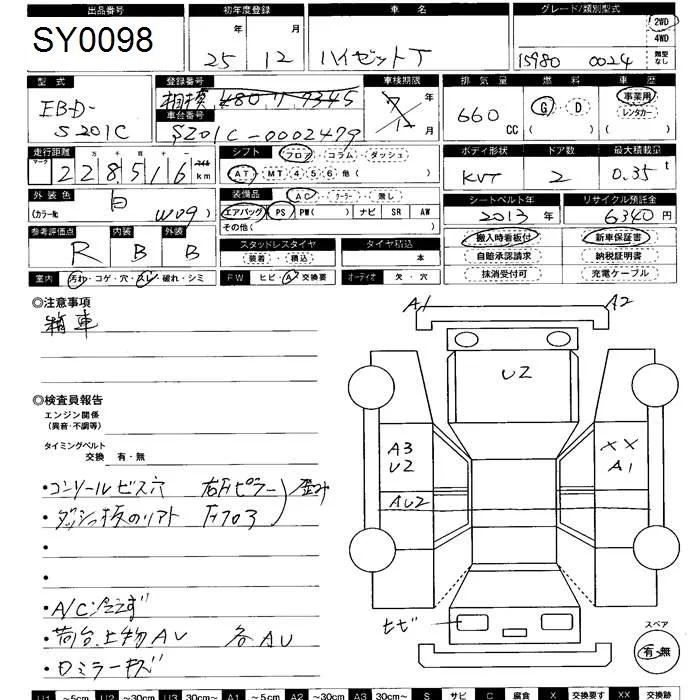 出品番号 初年度登録 車名 グレード/類別型式
SY0098 25年 12月 ハイゼットT 15980 0024 2WD 4WD 類型なし
型式 登録番号 車検期限 排気量 燃料 車歴
EBD-S201C 相模 480 り 9345 年 月 660cc G・D ( ) 事業用 レンタカー ( )
車台番号
S201C-0002479
走行距離 シフト フロア・コラム・ダッシュ ボディ形状 ドア数 最大積載量
マーク 十万 千 228516 マイル km AT・MT 4 5 6 他 ( ) 2 0.35t
外装色 装備品 AC・クーラー・無し シートベルト年 リサイクル預託金
白 (カラーNo. W09) エアバッグ PS PW( ) ナビ SR AW 2013年 6340円
その他( )
参考評価点 内装 外装 搬入時看板付 新車保証書
R B B スタッドレスタイヤ タイヤ積込 自賠承認請求 納税証明書
装着・積込 本 抹消受付可 充電ケーブル
室内 汚れ・コゲ・穴・スレ・破れ・シミ FW ヒビ・A・交換要 オーディオ 欠・穴
◎注意事項
箱車
◎検査員報告
エンジン関係
(異音・不調等)
タイミングベルト
交換 有・無
・コンソールビス穴 右Fピラー
・ダッシュ板のリフト Fフロア 歪み
・
・
・A/C冷えず
・荷台、上物AU 各AU
・ロミラーキズ
A1 A2
U2
A3
U2
XX
A1
AU2
ヒビ
スペア
有・無
U1 ~5cm U2 ~30cm U3 30cm~ A1 ~5cm A2 ~30cm A3 30cm~ S サビ C 腐食 X 交換要す XX 交換跡